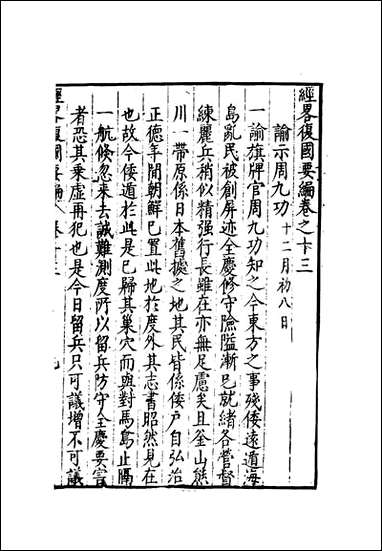 經畧復國要編卷之十三
諭示周九功 十二月初八日
一諭旗牌官周九功知之今東方之事殘倭遠遁海
島亂民被創屏迹全慶修守險隘漸已就緒各營督
練麗兵稍似精强行長雖在亦無足慮矣且釜山熊
川一帶原係日本舊據之地其民皆係倭户自弘治
正德年間朝鮮已置此地於度外其志書昭然見在
也故今倭遁於此是已歸其巢穴而與對馬島止隔
一航倏忽來去誠難測度所以留兵防守全慶要害
者恐其乘虚再犯也是今日留兵只可議增不可議
經畧復國要編 卷十三